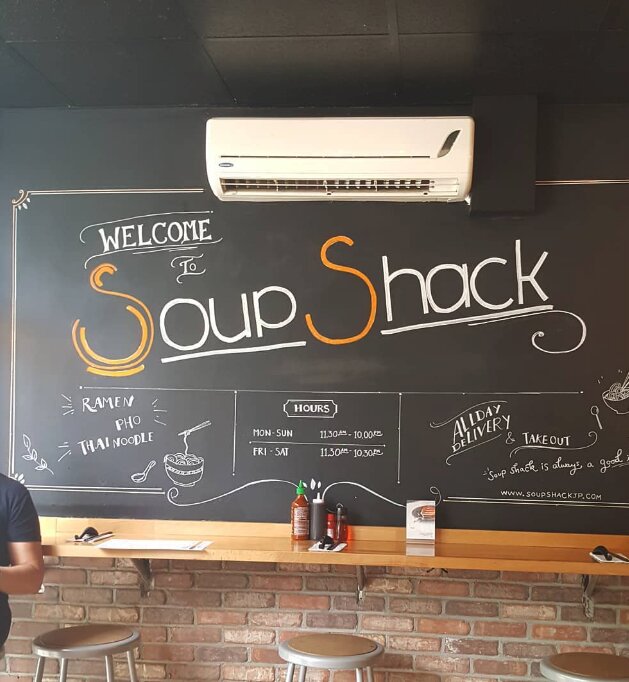 WELCOME
To
Soup Shack
RAMEN
PHO
THAI NOODLE
HOURS
MON - SUN 11.30 AM - 10.00 PM
FRI - SAT 11.30 AM - 10.30 PM
ALL DAY
DELIVERY
& TAKEOUT
Soup shack is always a good
WWW.SOUPSHACKJP.COM